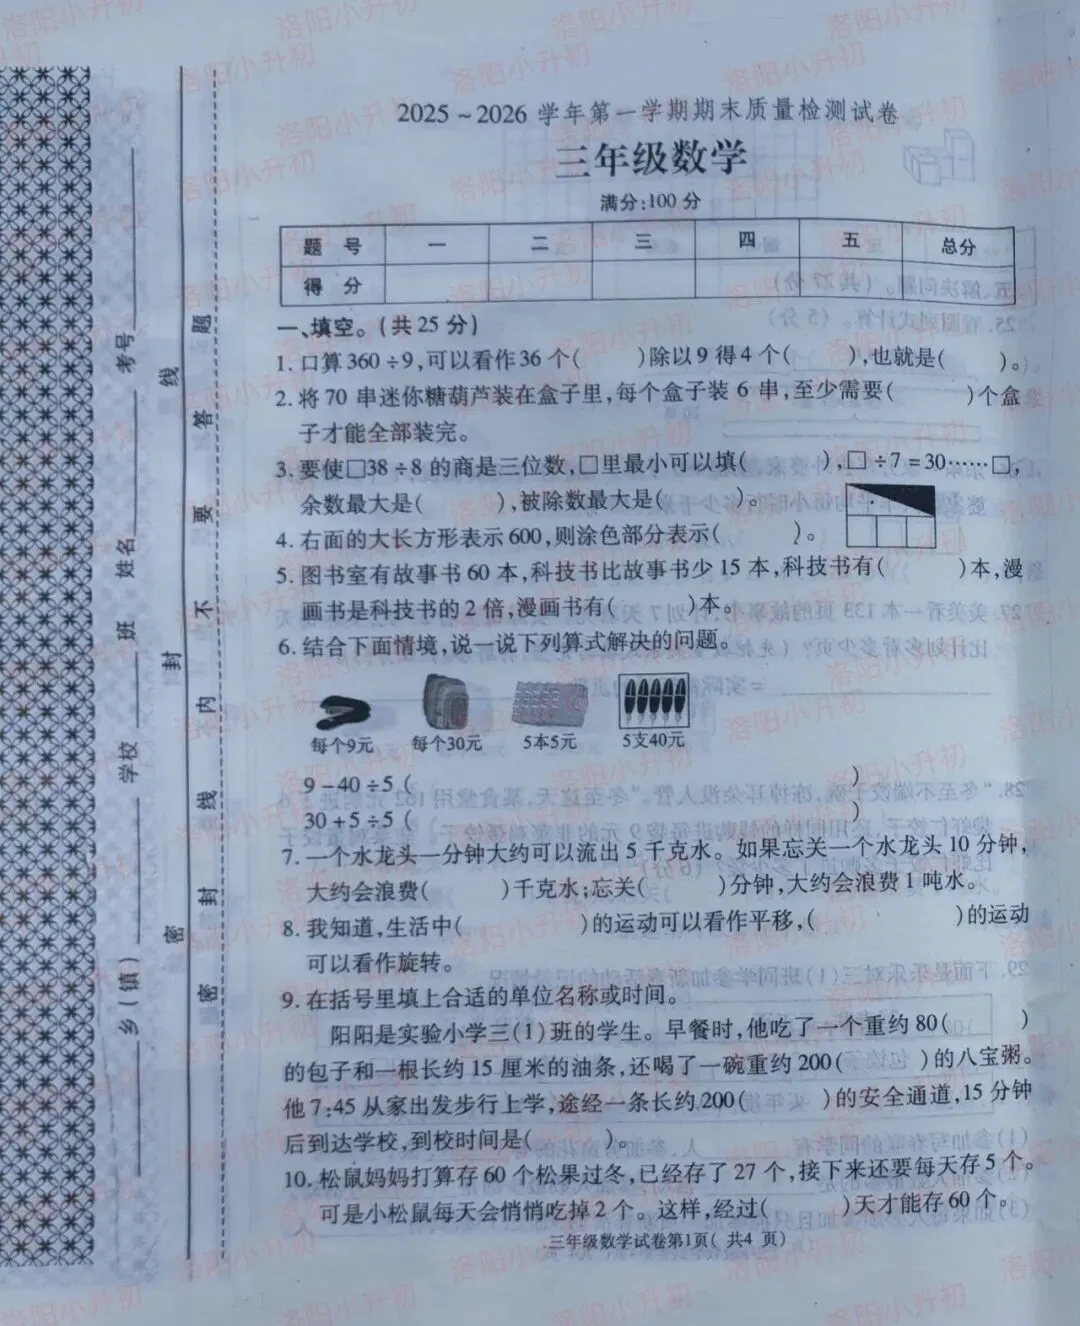 2025～2026 学年第一学期期末质量检测试卷
三年级数学
满分:100 分
题 号 一 二 三 四 五 总分
得 分
一、填空。(共 25 分)
1. 口算 360 ÷ 9,可以看作 36 个( )除以 9 得 4 个( ),也就是( )。
2. 将 70 串迷你糖葫芦装在盒子里,每个盒子装 6 串,至少需要( )个盒
子才能全部装完。
3. 要使□38 ÷ 8 的商是三位数,□里最小可以填( ),□ ÷ 7 = 30……□,
余数最大是( ),被除数最大是( )。
4. 右面的大长方形表示 600,则涂色部分表示( )。
5. 图书室有故事书 60 本,科技书比故事书少 15 本,科技书有( )本,漫
画书是科技书的 2 倍,漫画书有( )本。
6. 结合下面情境,说一说下列算式解决的问题。
每个9元 每个30元 5本5元 5支40元
9 - 40 ÷ 5 ( )
30 + 5 ÷ 5 ( )
7. 一个水龙头一分钟大约可以流出 5 千克水。如果忘关一个水龙头 10 分钟,
大约会浪费( )千克水;忘关( )分钟,大约会浪费 1 吨水。
8. 我知道,生活中( )的运动可以看作平移,( )的运动
可以看作旋转。
9. 在括号里填上合适的单位名称或时间。
阳阳是实验小学三(1)班的学生。早餐时,他吃了一个重约 80( )
的包子和一根长约 15 厘米的油条,还喝了一碗重约 200( )的八宝粥。
他 7:45 从家出发步行上学,途经一条长约 200( )的安全通道,15 分钟
后到达学校,到校时间是( )。
10. 松鼠妈妈打算存 60 个松果过冬,已经存了 27 个,接下来还要每天存 5 个。
可是小松鼠每天会悄悄吃掉 2 个。这样,经过( )天才能存 60 个。
三年级数学试卷第1页( 共4 页)
乡(镇) 学校 班 姓名 考号
密 封 线
密 封 线 内 不 要 答 题
洛阳小升初